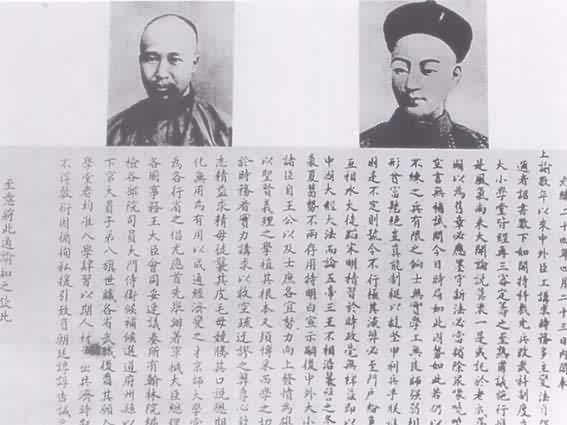 光緒二十四年四月二十三日內閣奉
上諭數年以來中外臣工講求時務多主變法自
邇者詔書數下如開特科裁冗兵改武科制度
大小學堂皆經再三審定籌之至熟甫議施行
是風氣尚未大開論說莫衷一是或託於老成
國以為舊章必應墨守新法必當擯除衆喙嘵
空言無補試問今日時局如此國勢如此若仍以
不練之兵有限之餉士無實學工無良師強弱相
形貧富懸絕豈真能制梃以撻堅甲利兵乎朕惟
國是不定則號令不行極其流弊必至門戶紛爭
互相水火徒蹈宋明積習於時政毫無裨益即以
中國大經大法而論五帝三王不相沿襲譬之冬
裘夏葛勢不兩存用特明白宣示嗣後中外大小
諸臣自王公以及士庶各宜努力向上發憤為雄
以聖賢義理之學植其根本又須博采西學之切
於時務者實力講求以救空疏迂謬之弊專心致
志精益求精毋徒襲其皮毛毋競騰其口說總期
化無用為有用以成通經濟變之才京師大學堂
為各行省之倡尤應首先舉辦著軍機大臣總理
各國事務王大臣會同妥速議奏所有翰林院編
檢各部院司員大門侍衛候補候選道府州縣以
下官大員子弟八旗世職各省武職後裔其願入
學堂者均准入學肄習以期人材輩出共濟時艱
不得敷衍因循徇私援引致負朝廷諄諄告誡之
至意將此通諭知之欽此